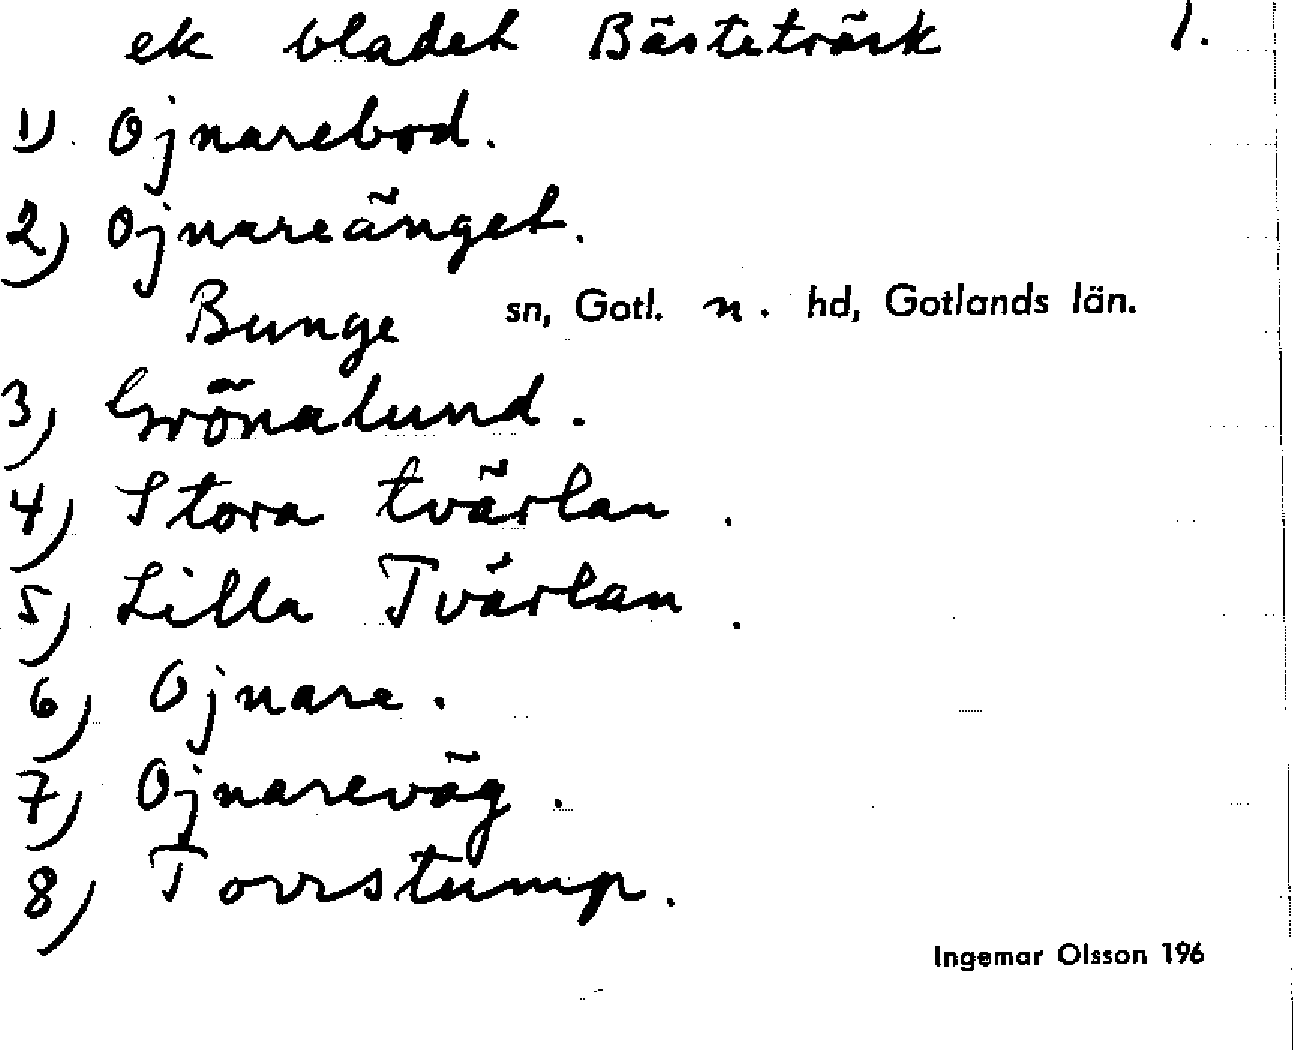 ek bladet Bästeträsk 1.
1). Ojnarebod.
2) Ojnareänget.
Bunge sn, Gotl. n. hd, Gotlands län.
3) Grönalund.
4) Stora tvärlan.
5) Lilla Tvärlan.
6) Ojnare.
7) Ojnareväg.
8) Torrstump.
Ingemar Olsson 196